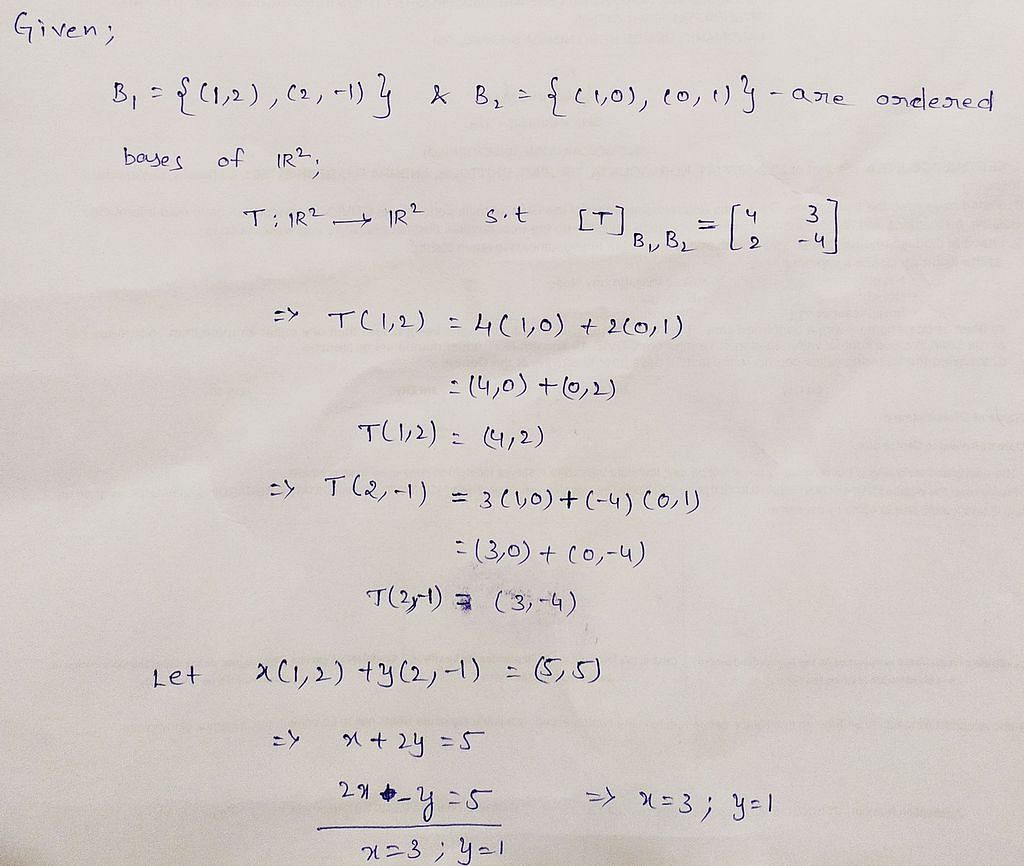 Given;
B₁ = {(1,2), (2,-1)} & B₂ = {(1,0), (0,1)} - are ordered
bases of IR²;
T: IR² → IR² s.t [T]B₁,B₂ = [4 3
2 -4]
=> T(1,2) = 4(1,0) + 2(0,1)
= (4,0) + (0,2)
T(1,2) = (4,2)
=> T(2,-1) = 3(1,0) + (-4)(0,1)
= (3,0) + (0,-4)
T(2,-1) = (3,-4)
Let x(1,2) + y(2,-1) = (5,5)
=> x + 2y = 5
2x - y = 5 => x=3; y=1
x=3; y=1